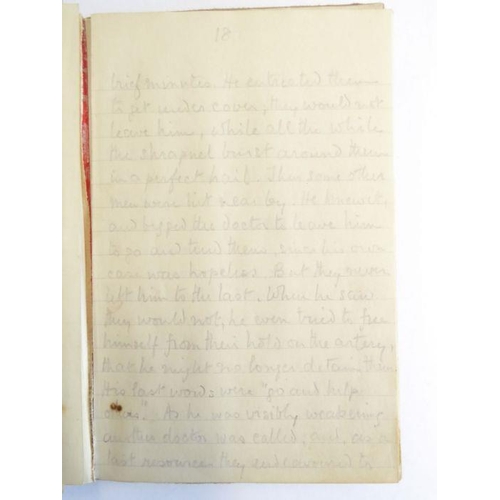 18
brief minutes. He entreated them
to get under cover, they would not
leave him, while all the while
the shrapnel burst around them
in a perfect hail. Then some other
men were hit near by. He knew it,
and begged the doctor to leave him
to go and tend them, since his own
case was hopeless. But they never
left him to the last. When he saw
they would not, he even tried to free
himself from their hold on the artery,
that he might no longer detain them.
His last words were "go and help
As he was visibly weakening
another doctor was called, and as a
last resource they endeavoured to